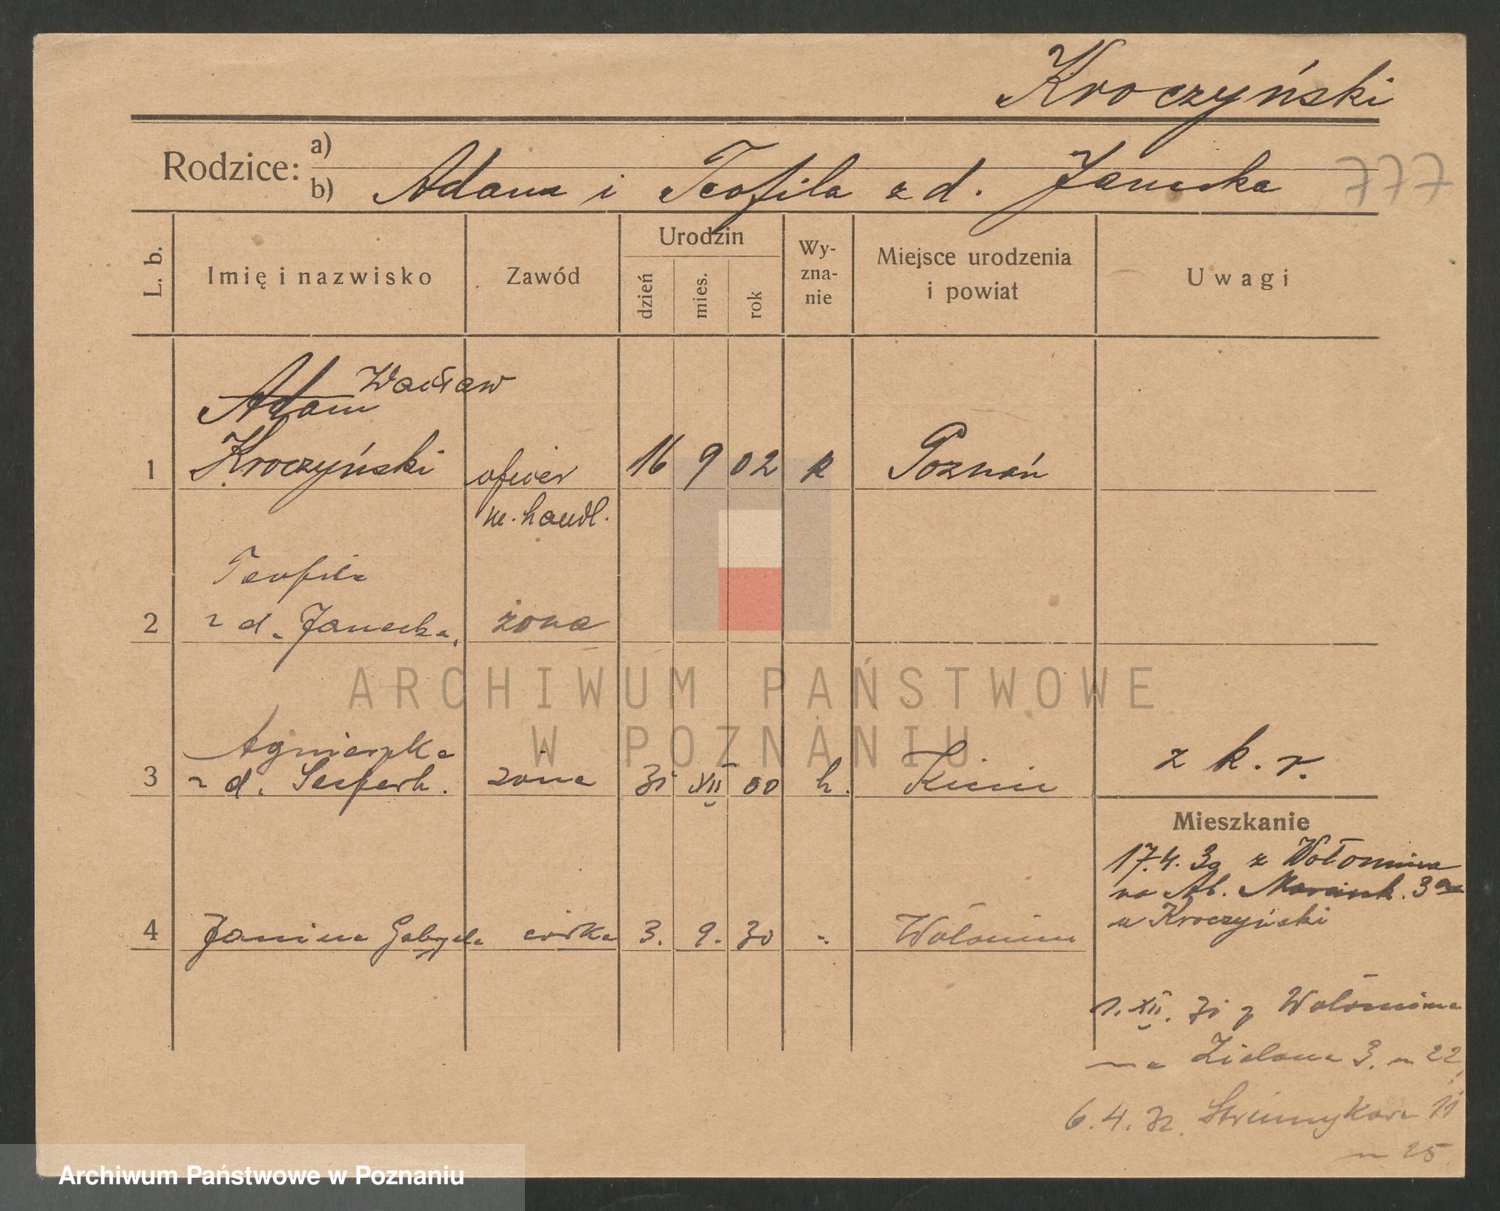 Kroczyński
Rodzice: a)
b) Adama i Teofila z d. Janecka 777
L. b. Imię i nazwisko Zawód Urodzin dzień mies. rok Wy-zna-nie Miejsce urodzenia i powiat Uwagi
Adam Wacław
1 Kroczyński oficer 16 9 02 k Poznań
m. handl.
Teofila
2 z d. Janecka. żona
Agnieszka
3 z d. żona 31 XII 00 k. z k. r.
Mieszkanie
17.4.30 z Wołomina
na Al. Marcink. 3a
u Kroczyński
4 Janina Gabryela córka 3. 9. 30 Wołomin
1. XII. 31 z Wołomina
na Zielona 3. m 22
6.4. 32. Strumykowa 11
m 25
ARCHIWUM PAŃSTWOWE
W POZNANIU
Archiwum Państwowe w Poznaniu